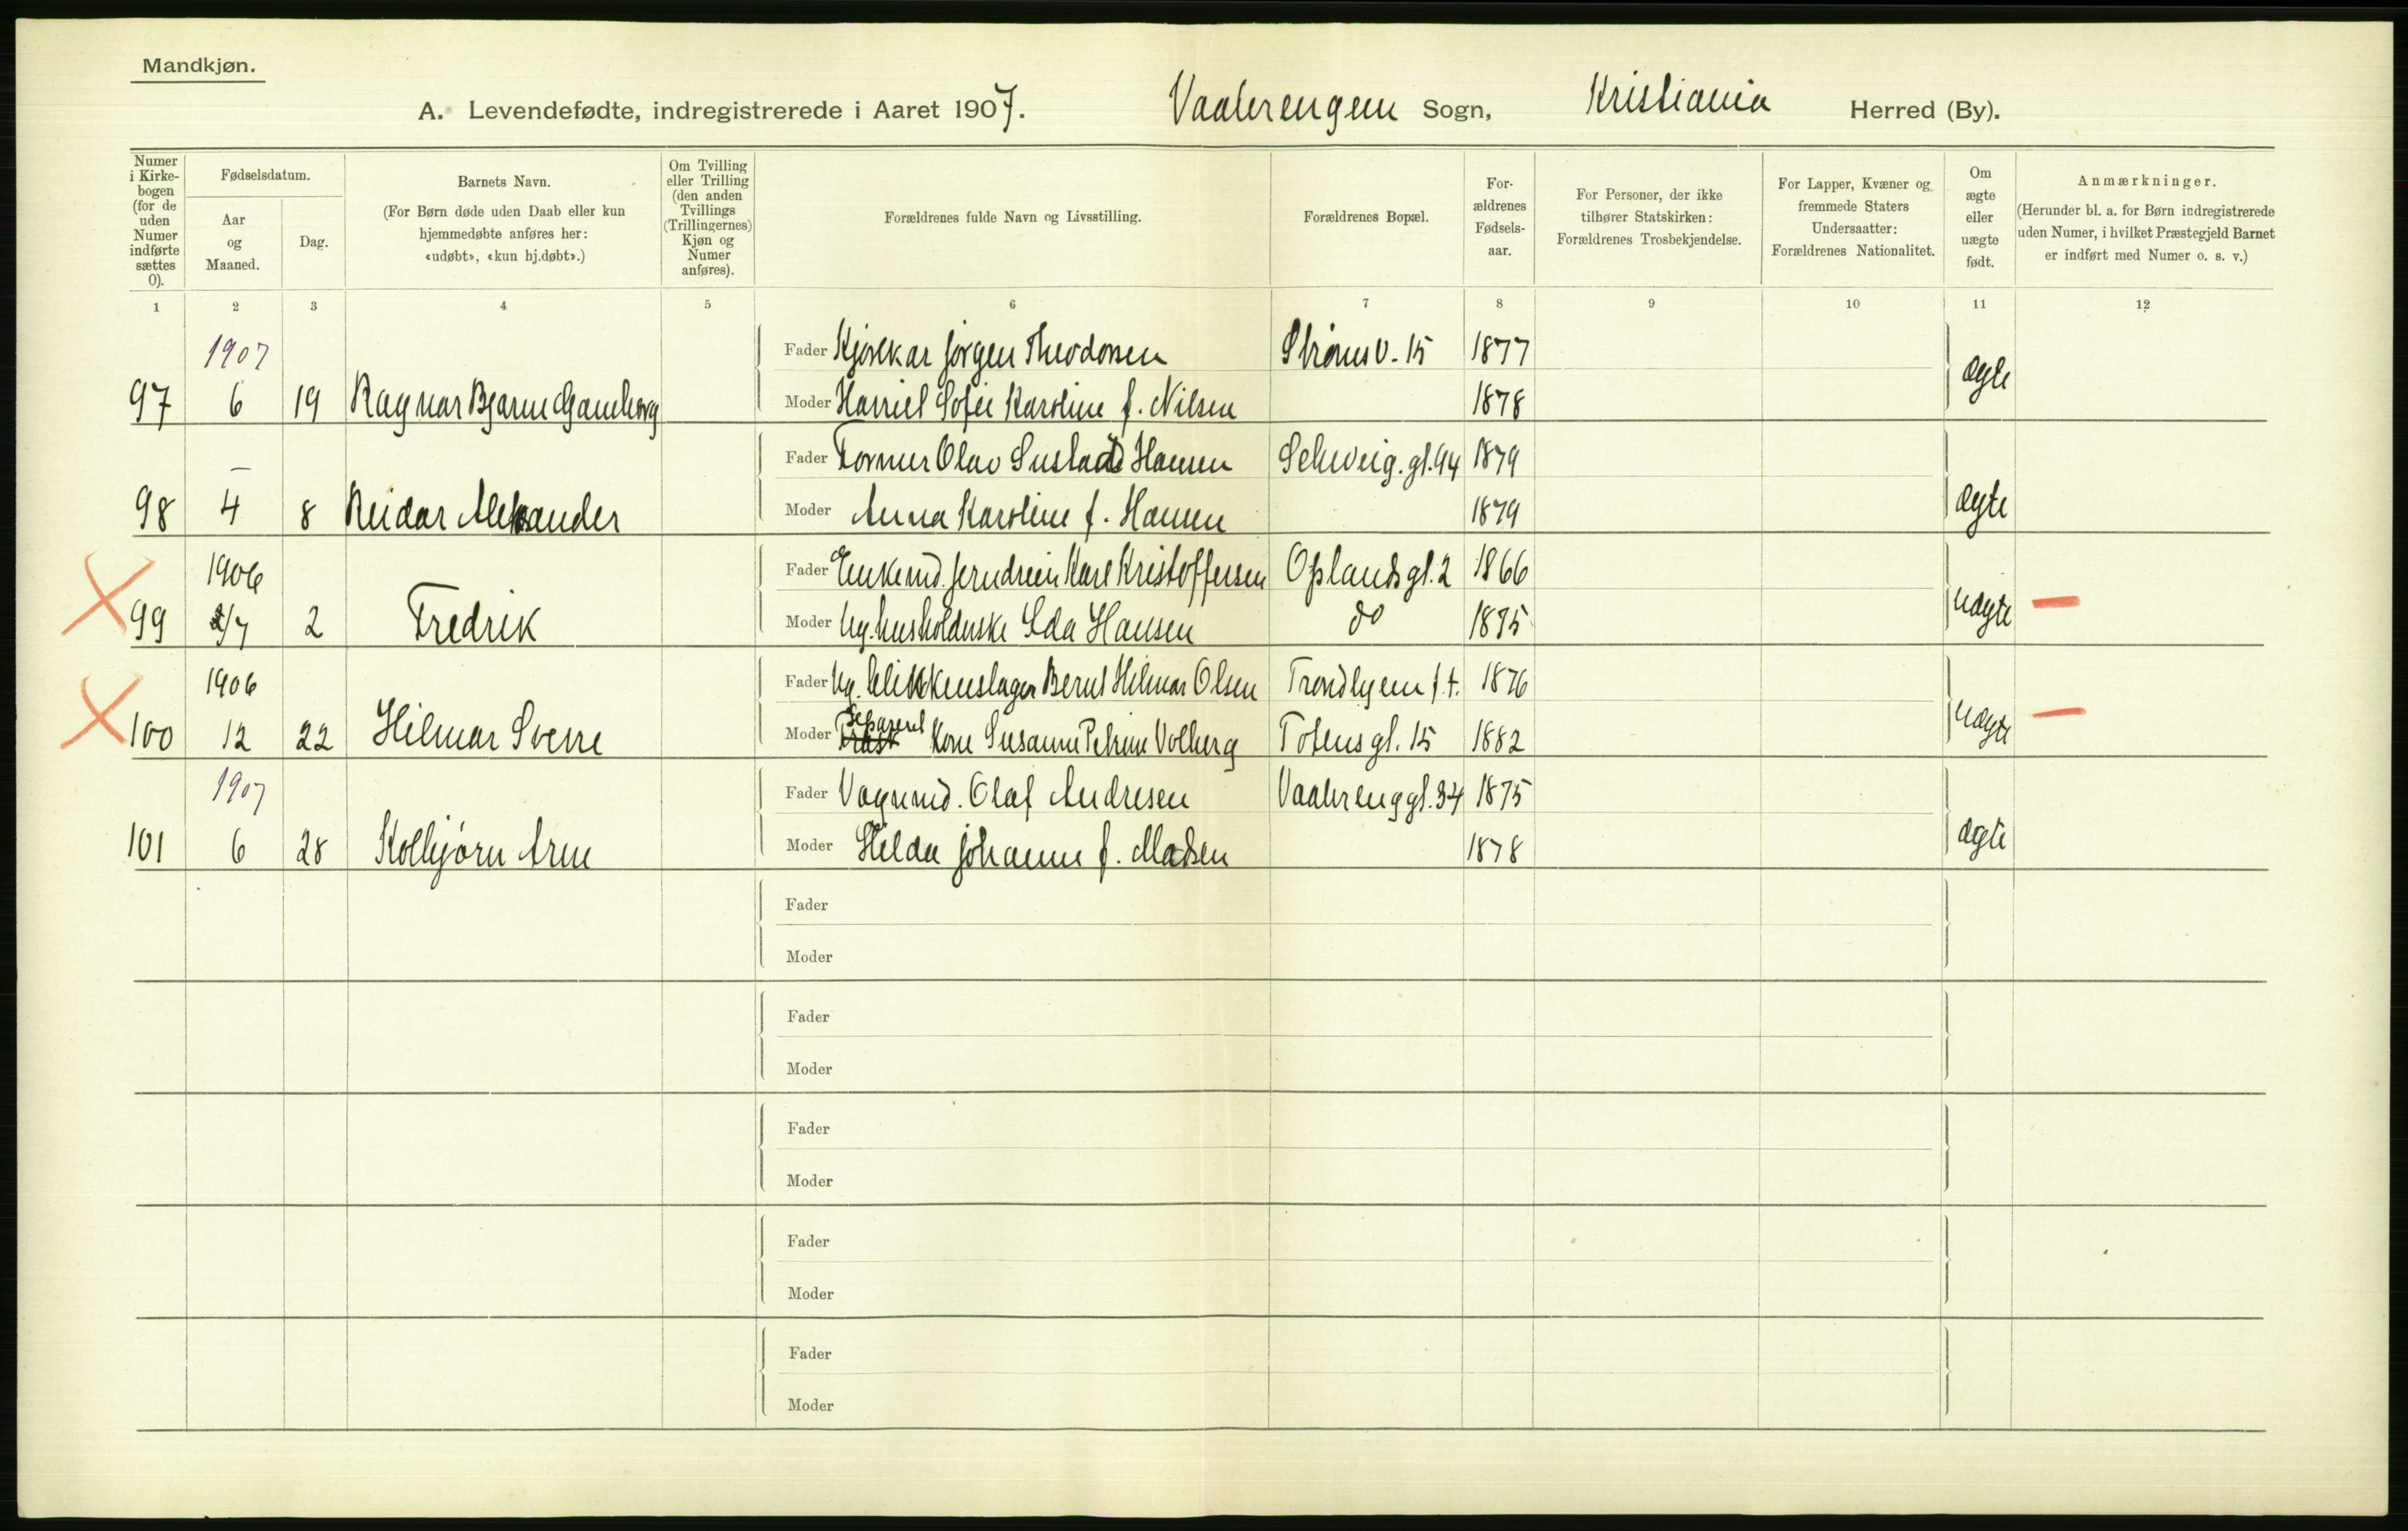 Mandkjøn.
A. Levendefødte, indregistrerede i Aaret 1907. Vaalerengen Sogn, Kristiania Herred (By).
Numer i Kirke-bogen (for de uden Numer indførte sættes 0).
Fødselsdatum.
Aar og Maaned.
Dag.
Barnets Navn.
(For Børn døde uden Daab eller kun hjemmedøbte anføres her: «udøbt», «kun hj.døbt».)
Om Tvilling eller Trilling (den anden Tvillings (Trillingernes) Kjøn og Numer anføres).
Forældrenes fulde Navn og Livsstilling.
Forældrenes Bopæl.
For-ældrenes Fødsels-aar.
For Personer, der ikke tilhører Statskirken: Forældrenes Trosbekjendelse.
For Lapper, Kvæner og fremmede Staters Undersaatter: Forældrenes Nationalitet.
Om ægte eller uægte født.
Anmærkninger.
(Herunder bl. a. for Børn indregistrerede uden Numer, i hvilket Præstegjeld Barnet er indført med Numer o. s. v.)
1 2 3 4 5 6 7 8 9 10 11 12
1907 Fader Kjørekar Jørgen Theodorsen Strømsv. 15 1877 ægte
97 6 19 Ragnar Bjarne Gamborg Moder Harriet Sofie Karoline f. Nilsen 1878
– Fader Former Olav Gustad Hansen Schweig.gt.94 1879 ægte
98 4 8 Reidar Aleksander Moder Anna Karoline f. Hansen 1879
1906 Fader Enkemd. jerndreier Karl Kristoffersen Oplandsgt. 2 1866 uægte –
99 2/7 2 Fredrik Moder Ug. husholderske Ida Hansen do 1875
1906 Fader Ug. blikkenslager Bernt Hilmar Olsen Trondhjem f.t. 1876 uægte –
100 12 22 Hilmar Sverre Moder Separert Kone Susanne Petrine Volberg Totensgt. 15 1882
1907 Fader Vognmd. Olaf Andresen Vaalerenggt. 34 1875 ægte
101 6 28 Kolbjørn Arne Moder Hilda Johanne f. Madsen 1878
Fader
Moder
Fader
Moder
Fader
Moder
Fader
Moder
Fader
Moder